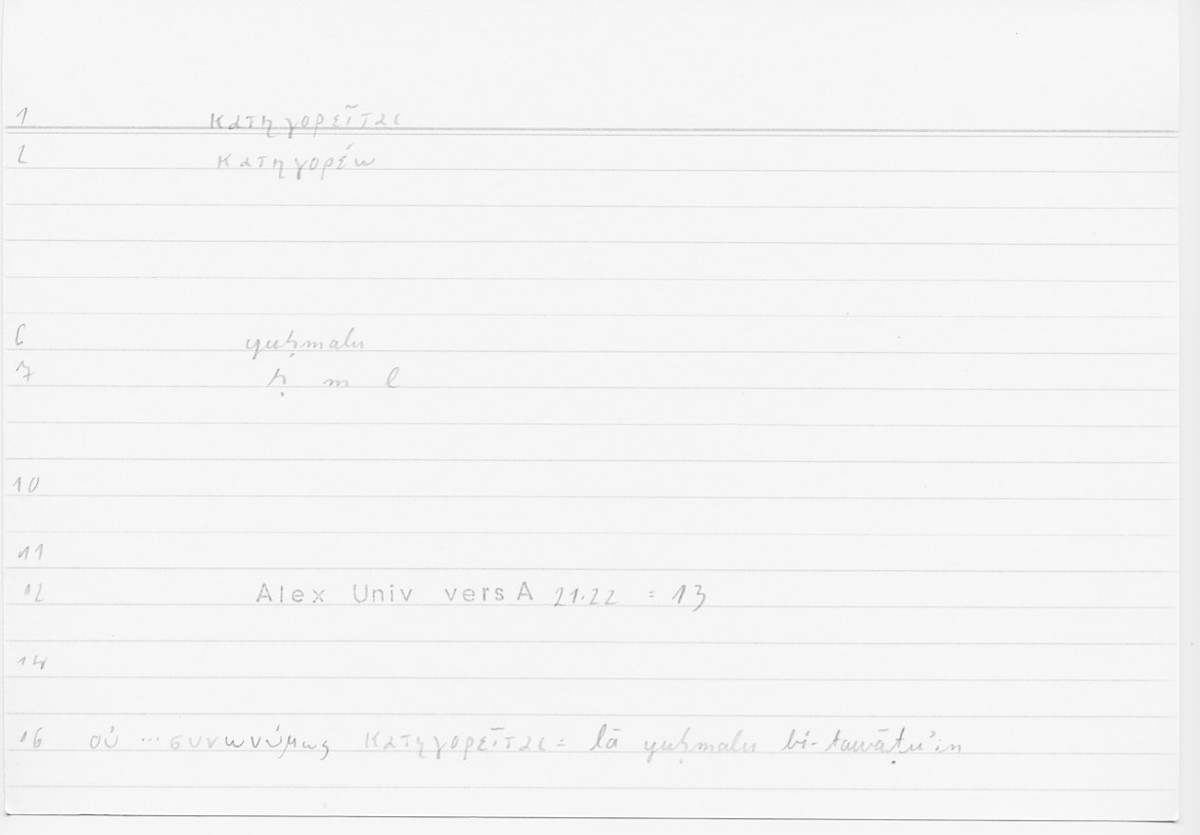 1 κατηγορεῖται
2 κατηγορέω
6 yuḥmalu
7 ḥ m l
10
11
12 Alex Univ vers A 21.22 = 13
14
16 οὐ ... συνωνύμως κατηγορεῖται = lā yuḥmalu bi-tawāṭuʾin